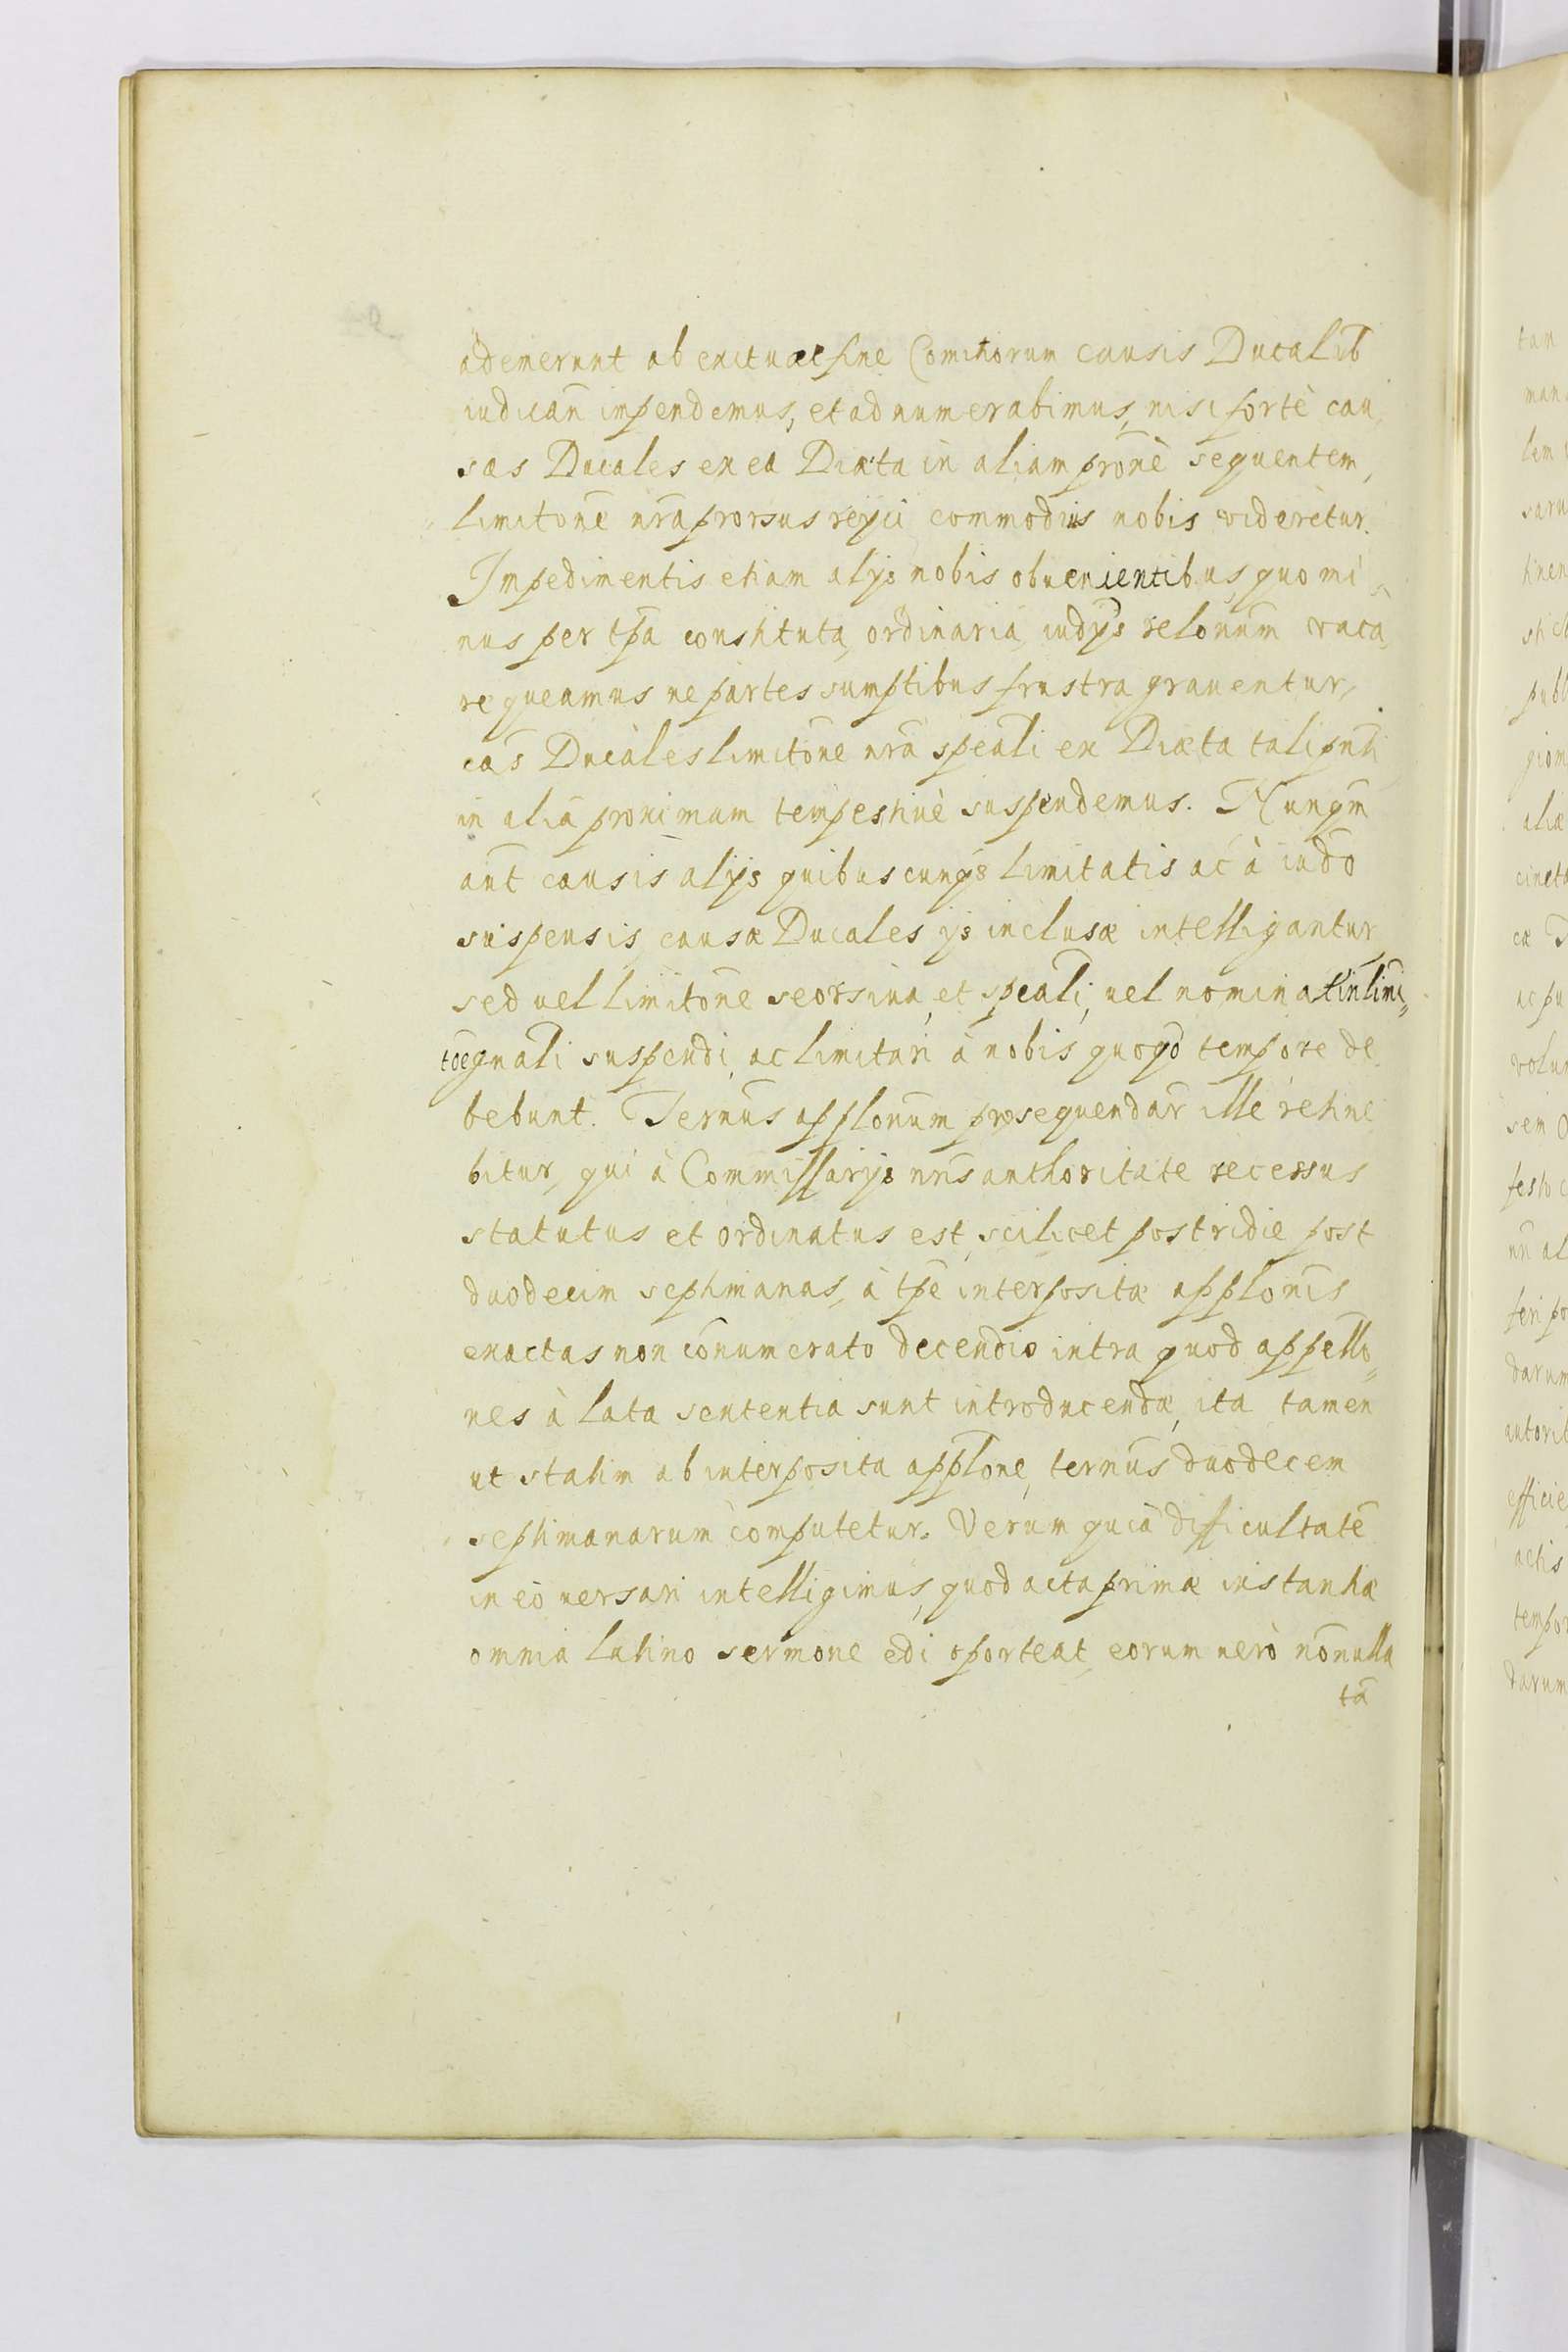 ademerunt ab exitu ac fine Comitiorum causis Ducalib
iudican̄ impendemus, et adnumerabimus, nisi fortè cau
sas Ducales ex ea Diæta in aliam prox̄nè sequentem,
limitōne nrā prorsus reijci commodius nobis viderètur.
Impedimentis etiam alijs nobis obuenientibus, quo mi„
nus per tp̄a constituta, ordinaria iud̄ijs relōnum vaca
re queamus ne partes sumptibus frustra grauentur,
cās Ducales limitōne nrā spēali ex Diæta tali pn̄ti
in aliā proximam tempestiuè suspendemus. Nunqm̄
aut̄ causis alijs quibuscunqȝ limitatis ac à iud̄o
suspensis, causæ Ducales ijs inclusæ intelligantur
sed uel limitōne seorsiua, et spēali, uel nominatin limi„
tōe gn̄ali suspendi, ac limitari à nobis quoqȝ tempore de
bebunt. Termūs applōnum prosequendar̄ ille retine
bitur, qui à Commissarijs nr̄is authoritate recessus
statutus et ordinatus est, scilicet postridie post
duodecim septimanas, à tp̄e interpositæ applōnis
exactas non cōnumerato decendio intra quod appellō„
nes à lata sententia sunt introducendæ, ita tamen
ut statim ab interposita applōne, termūs duodecem
septimanarum computetur. Verum quià difficultatē
in eo uersari intelligimus, quod acta primæ instantiæ
omnia latino sermone edi oporteat, eorum uerò nōnulla
tā
tan
lem
saru
hnen
publ
giom
aliæ
ac pu
volun
sem
festo
darum
autorit
efficie
actis
tempor
darum